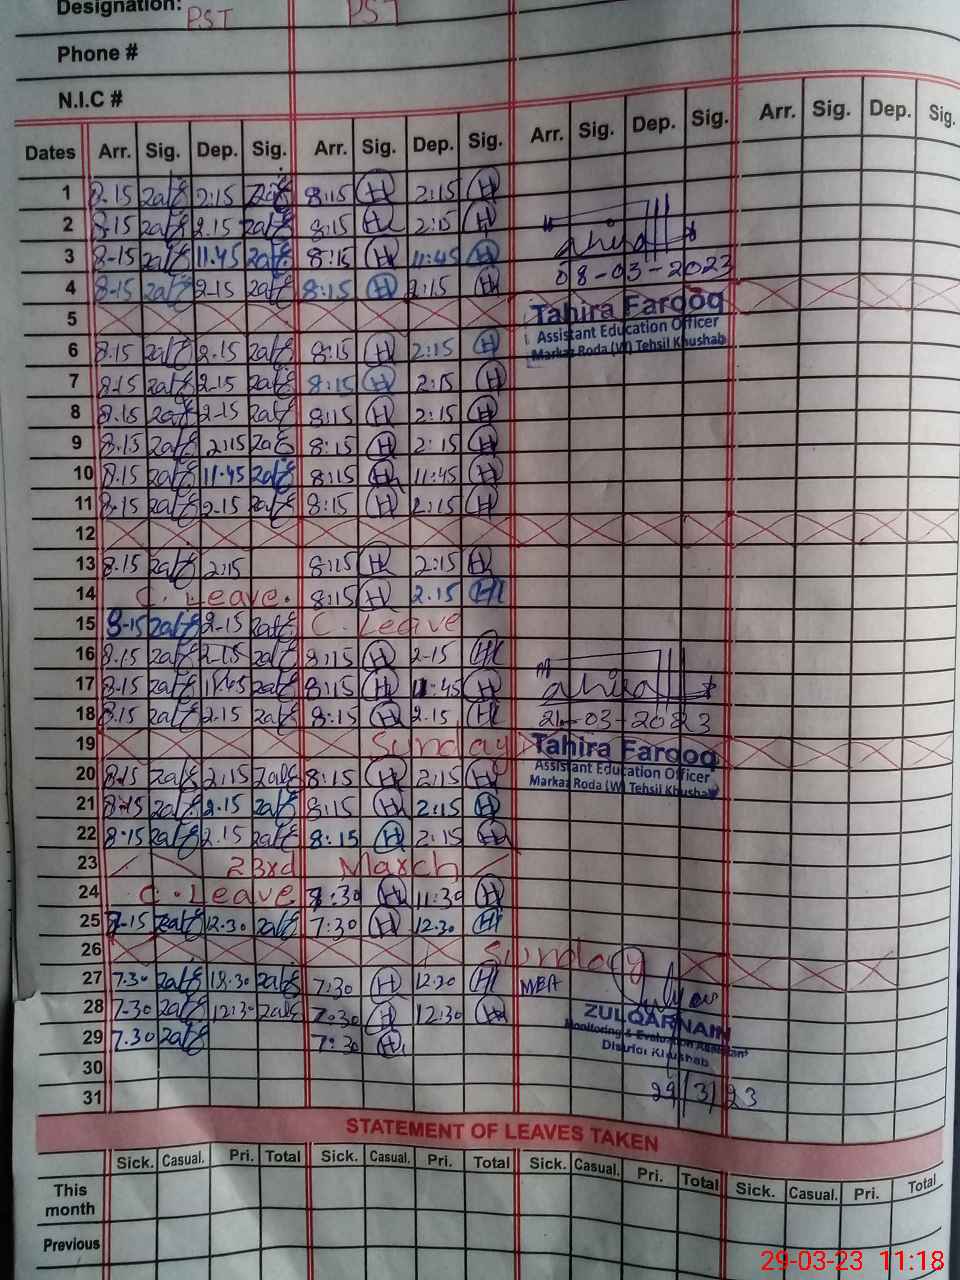 Designation: PST PST
Phone #
N.I.C #
Dates Arr. Sig. Dep. Sig. Arr. Sig. Dep. Sig. Arr. Sig. Dep. Sig. Arr. Sig. Dep. Sig.
1 8.15 2:15 8:15 H 2:15 H
2 8.15 2.15 8:15 H 2:15 H
3 8-15 11.45 8:15 H 11:45 H
08-03-2023
4 8-15 2-15 8:15 H 2:15 H
Tahira Farooq
5
Assistant Education Officer
Markaz Roda (W) Tehsil Khushab
6 8.15 2.15 8:15 H 2:15 H
7 8.15 2-15 8:15 H 2:15 H
8 8.15 2-15 8:15 H 2:15 H
9 8.15 2:15 8:15 H 2:15 H
10 8.15 11.45 8:15 H 11:45 H
11 8.15 2-15 8:15 H 2:15 H
12
13 8.15 2:15 8:15 H 2:15 H
14 C. Leave. 8:15 H 2.15 H
15 8-15 2-15 C. Leave
16 8.15 2-15 8:15 H 2-15 H
17 8-15 11.45 8:15 H 11:45 H
18 8.15 2.15 8:15 H 2.15 H
21-03-2023
19 Sunday
Tahira Farooq
Assistant Education Officer
Markaz Roda (W) Tehsil Khushab
20 8.15 2:15 8:15 H 2:15 H
21 8.15 2.15 8:15 H 2:15 H
22 8.15 2.15 8:15 H 2:15 H
23 23rd March
24 C. Leave 8:30 H 11:30 H
25 7-15 12.30 7:30 H 12.30 H
26 Sunday
27 7.30 12.30 7:30 H 12:30 H MEA
28 7-30 12:30 7:30 H 12:30 H
ZULQARNAIN
Monitoring & Evaluation Assistant
District Khushab
29 7.30 7:30 H
30
31 29/3/23
STATEMENT OF LEAVES TAKEN
Sick. Casual. Pri. Total Sick. Casual. Pri. Total Sick. Casual. Pri. Total Sick. Casual. Pri. Total
This month
Previous
29-03-23 11:18